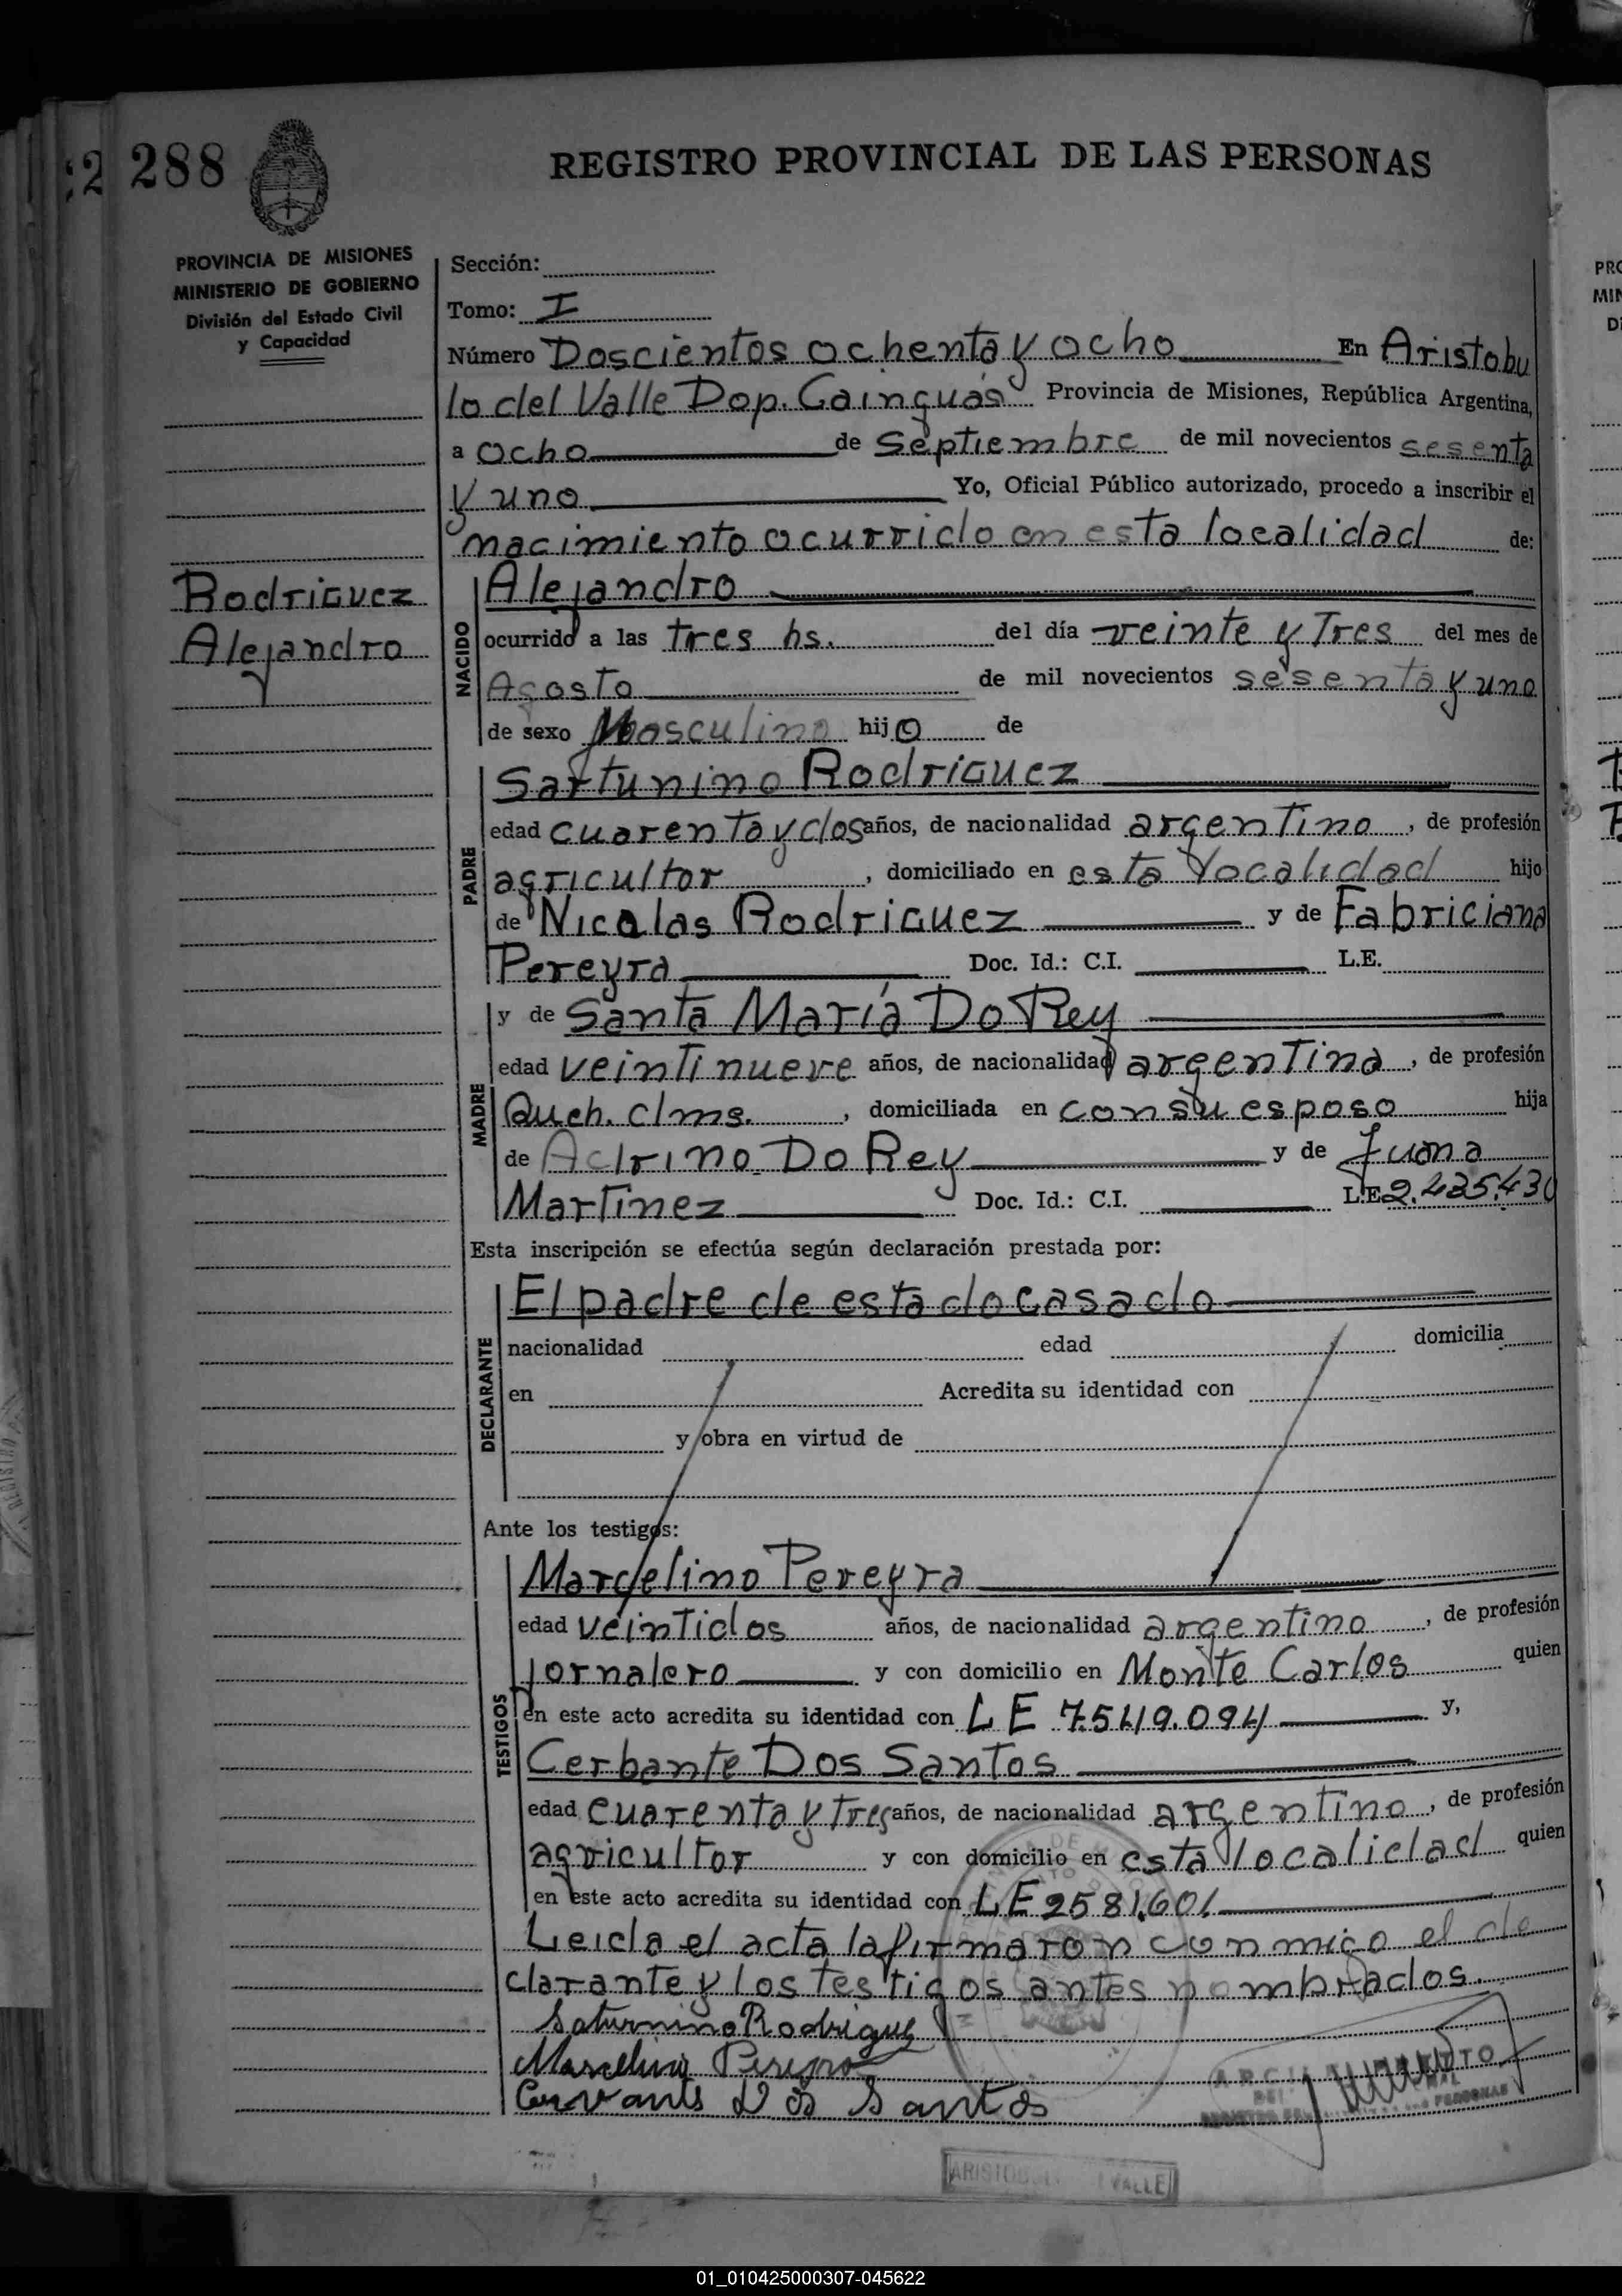 288
REGISTRO PROVINCIAL DE LAS PERSONAS
PROVINCIA DE MISIONES
MINISTERIO DE GOBIERNO
División del Estado Civil
y Capacidad
Rodriguez
Alejandro
Sección:
Tomo: I
Número Doscientos ochenta y ocho En Aristobu
lo del Valle Dep. Cainguás Provincia de Misiones, República Argentina,
a ocho de Septiembre de mil novecientos sesenta
y uno Yo, Oficial Público autorizado, procedo a inscribir el
nacimiento ocurrido en esta localidad de:
NACIDO
Alejandro
ocurrido a las tres hs. del día veinte y Tres del mes de
Agosto de mil novecientos sesenta y uno
de sexo Masculino hijo de
PADRE
Sarturnino Rodriguez
edad cuarenta y dos años, de nacionalidad argentino, de profesión
agricultor, domiciliado en esta localidad hijo
de Nicolas Rodriguez y de Fabriciana
Pereyra Doc. Id.: C.I. L.E.
MADRE
y de Santa María Do Rey
edad veinti nueve años, de nacionalidad argentina, de profesión
Queh. dms., domiciliada en con su esposo hija
de Adrino Do Rey y de Juana
Martinez Doc. Id.: C.I. L.E. 2.435.430
Esta inscripción se efectúa según declaración prestada por:
DECLARANTE
El padre de estado casado
nacionalidad edad domicilia
en Acredita su identidad con
y obra en virtud de
Ante los testigos:
TESTIGOS
Marcelino Pereyra
edad veintidos años, de nacionalidad argentino, de profesión
jornalero y con domicilio en Monte Carlos quien
en este acto acredita su identidad con LE 7.549.094 y,
Cerbante Dos Santos
edad cuarenta y tres años, de nacionalidad argentino, de profesión
agricultor y con domicilio en esta localidad quien
en este acto acredita su identidad con LE 2581.601
Leida el acta la firmaron conmigo el de
clarante y los testigos antes nombrados.
Saturnino Rodrigue
Marcelino Pereyra
Cervantes Dos Santos
ARISTOBU VALLE
01_010425000307-045622